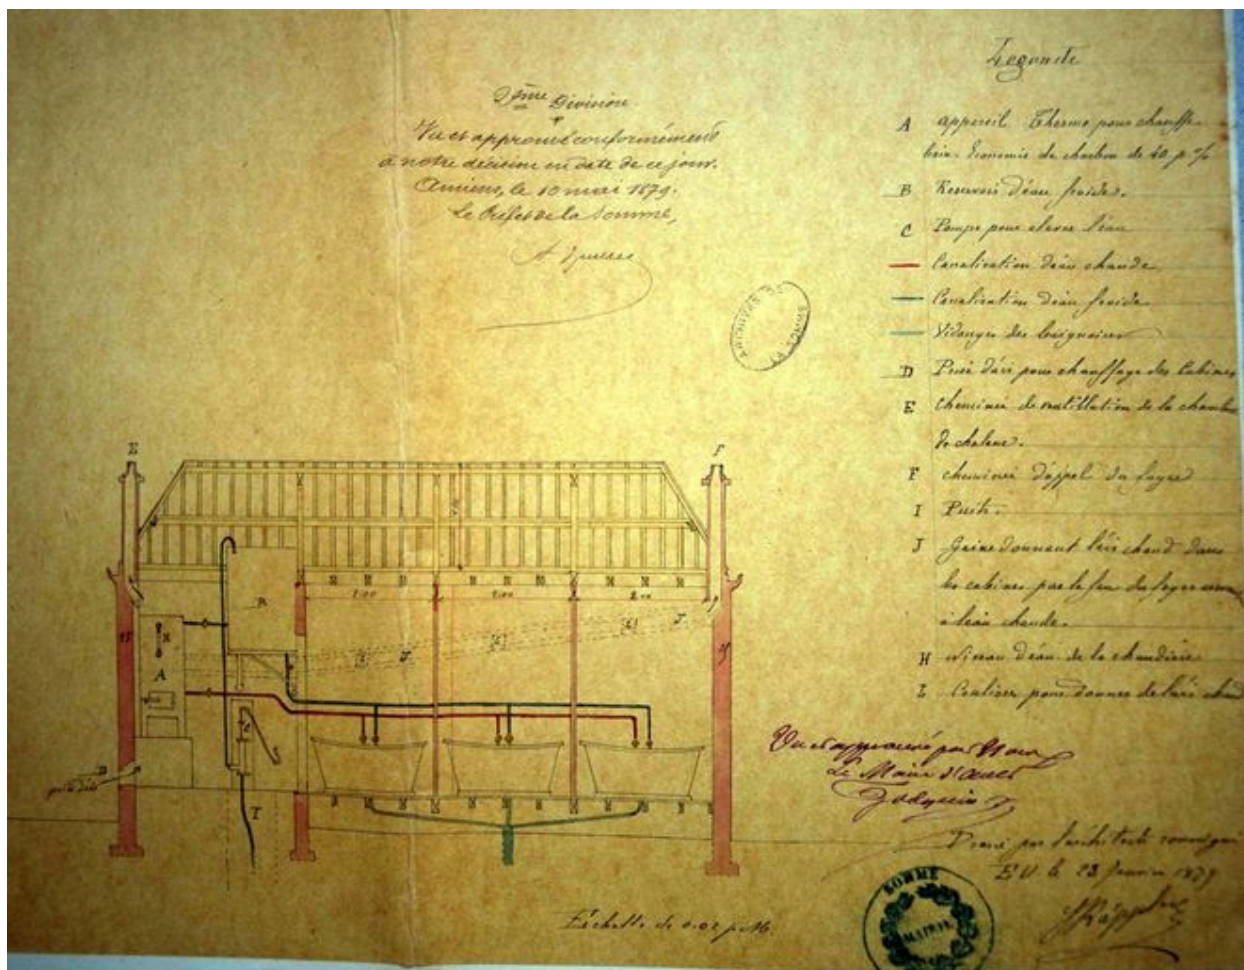 Legende
2ème Division
Vu et approuvé conformément
à notre décision en date de ce jour.
Amiens, le 10 mai 1879.
Le Préfet de la Somme,
ARCHIVES DE
LA SOMME
A appareil Thermo pour chauffe
bain. Economie de charbon de 40 p %
B Reservoir d'eau froide.
C Pompe pour elever l'eau
Canalisation d'eau chaude
Canalisation d'eau froide
Vidanges des baignoires
D Prise d'air pour chauffage des Cabines
E Cheminée de ventillation de la chambre
de chaleur.
F cheminée d'appel du foyer
I Puits.
J Gaine donnant l'air chaud dans
les cabines par le feu du foyer
à l'eau chaude.
H Niveau d'eau de la chaudière
L Coulisses pour donner de l'air chaud
E
F
B
2.00
2.00
2.00
J
J
H
A
C
D
prise d'air
I
Vu et approuvé par Nous
Le Maire d'Ault
Dressé par l'architecte soussigné
EU le 23 Janvier 1879
SOMME
MAIRIE
Echelle de 0.02 p. M.